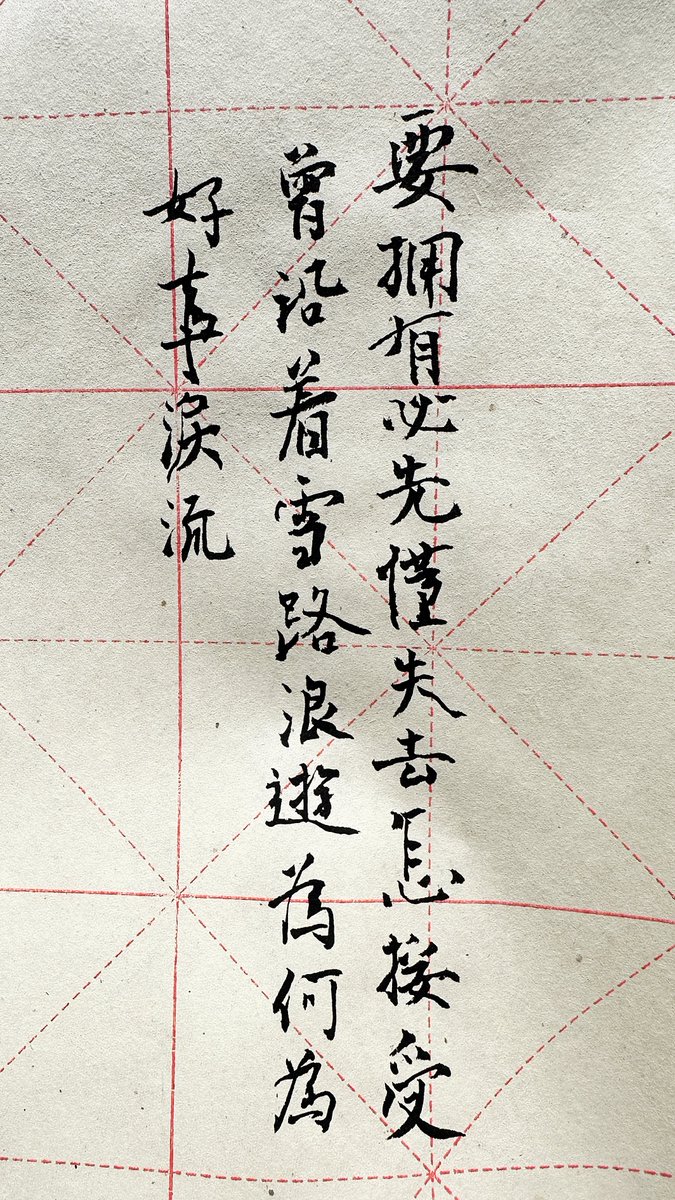 要擁有必先懂失去怎接受
曾沿着雪路浪遊為何為
好事淚流